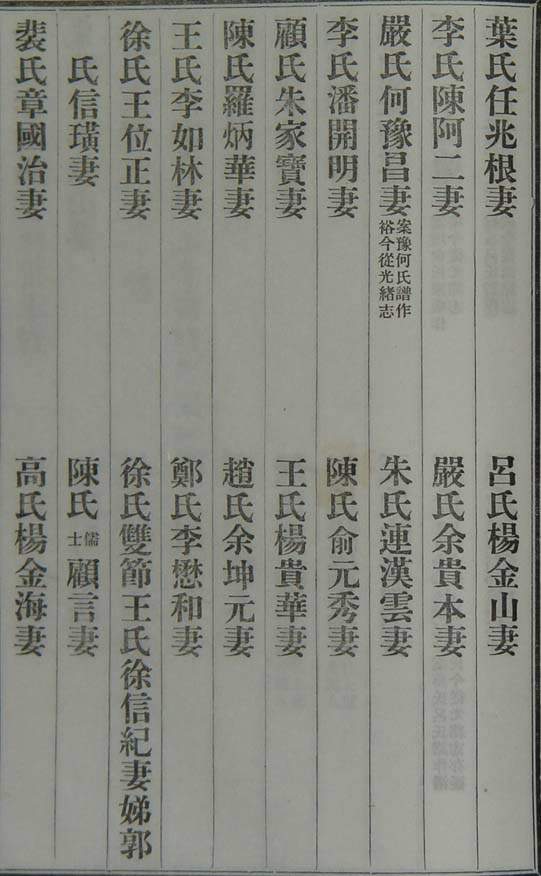 葉氏任兆根妻
呂氏楊金山妻
李氏陳阿二妻
嚴氏余貴本妻
嚴氏何豫昌妻案豫何氏譜作裕今從光緒志
朱氏連漢雲妻
李氏潘開明妻
陳氏俞元秀妻
顧氏朱家寶妻
王氏楊貴華妻
陳氏羅炳華妻
趙氏余坤元妻
王氏李如林妻
鄭氏李懋和妻
徐氏王位正妻
徐氏雙節王氏徐信紀妻娣郭
氏信璜妻
陳氏儒士顧言妻
裴氏章國治妻
高氏楊金海妻